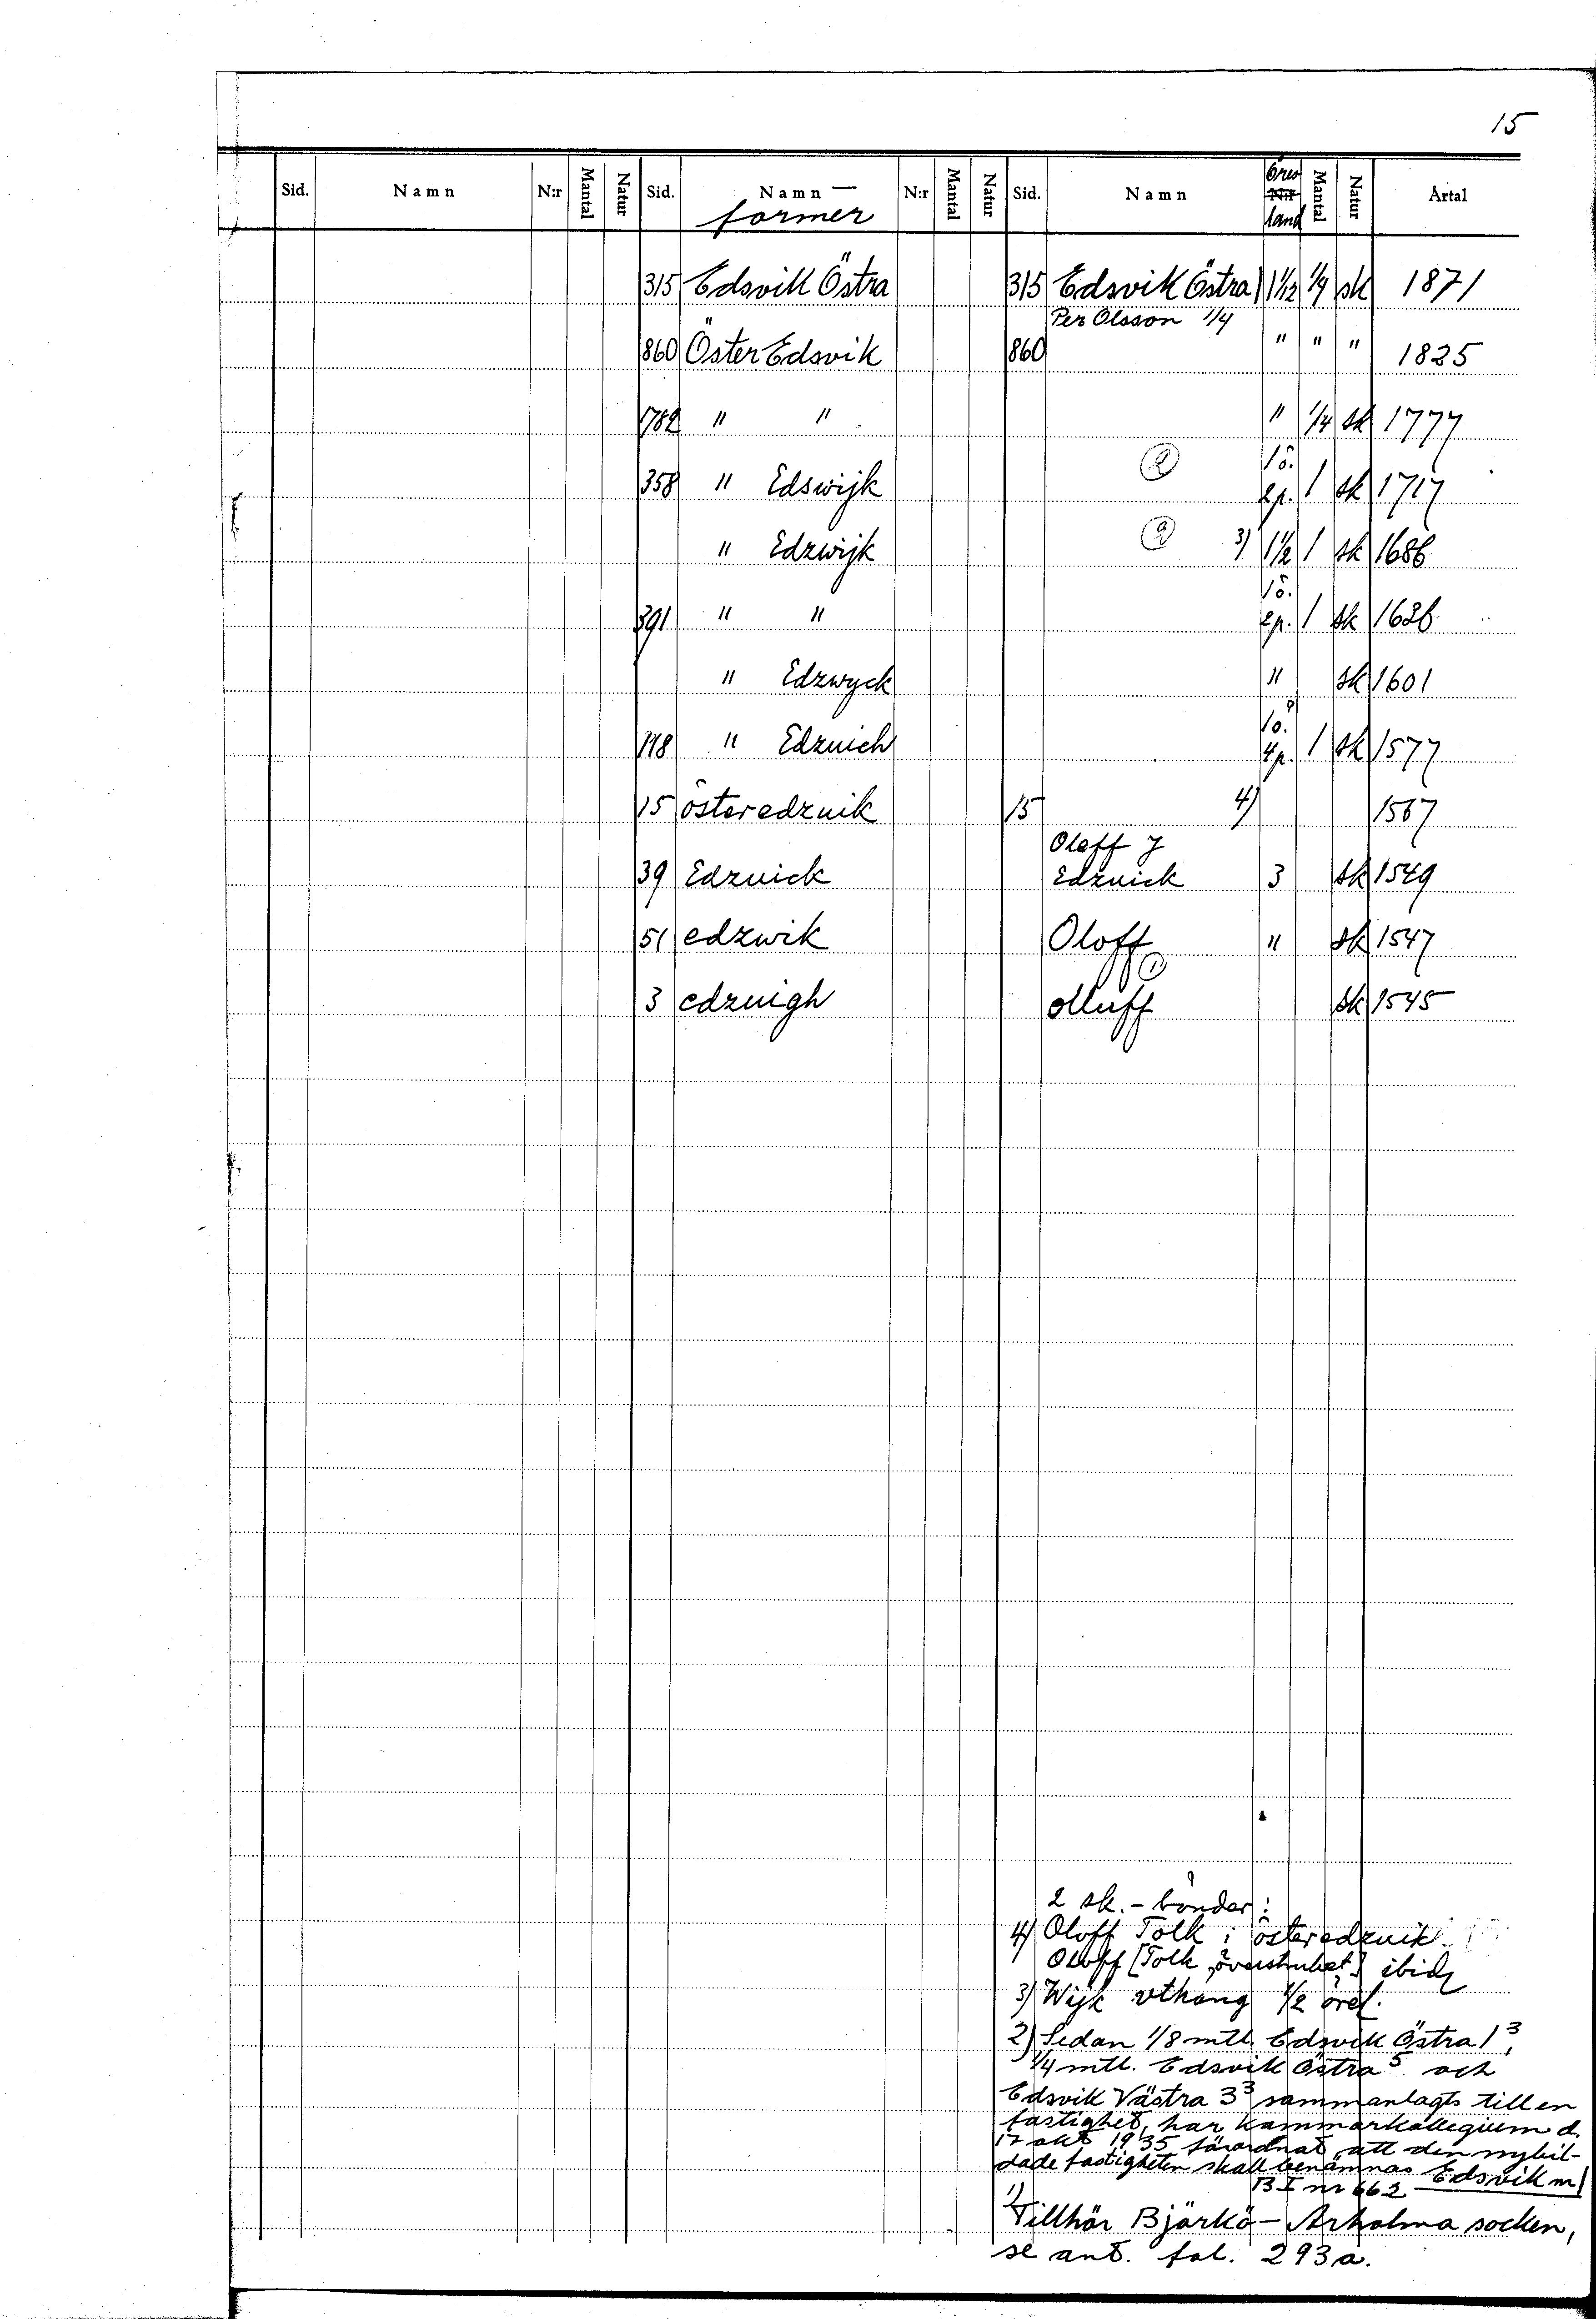 15
Sid. Namn N:r Mantal Natur Sid. Namn — N:r Mantal Natur Sid. Namn Öres N:r land Mantal Natur Årtal
former
315 Edsvik Östra 315 Edsvik Östra 1 1/2 1/4 sk 1871
Per Olsson 1/4
860 Öster Edsvik 860 " " " 1825
1782 " " " 1/4 sk 1777
358 " Edswijk 2 1ö. 2p. 1 sk 1717
" Edzwijk 2 3) 1 1/2 1 sk 1686
391 " " 1ö. 2p. 1 sk 1626
" Edzwyck " sk 1601
118 " Edzuich 1ö. 4p. 1 sk 1577
15 österedzuik 15 4) 1567
Oloff J
39 Edzuick Edzuick 3 sk 1549
51 edzwik Oloff " sk 1547
3 edzuigh olluff sk 1545
2 sk.-bönder:
4) Oloff Tolk i österedzuik
Oloff [Tolk, överstruket] ibid
3) Wijk vthäng 1/2 örel.
2) Sedan 1/8 mtl. Edsvik Östra 1³,
1/4 mtl. Edsvik Östra ⁵ och
Edsvik Västra 3³ sammanlagts till en
fastighet, har Kammarkollegium d.
17 okt 1935 förordnat, att den nybil-
dade fastigheten skall benämnas Edsvik m/
B I nr 662
1) Tillhör Björkö-Arholma socken,
se ant. fol. 293a.